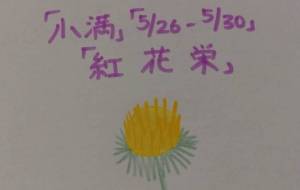 「小満」「5/26-5/30」
「紅花栄」